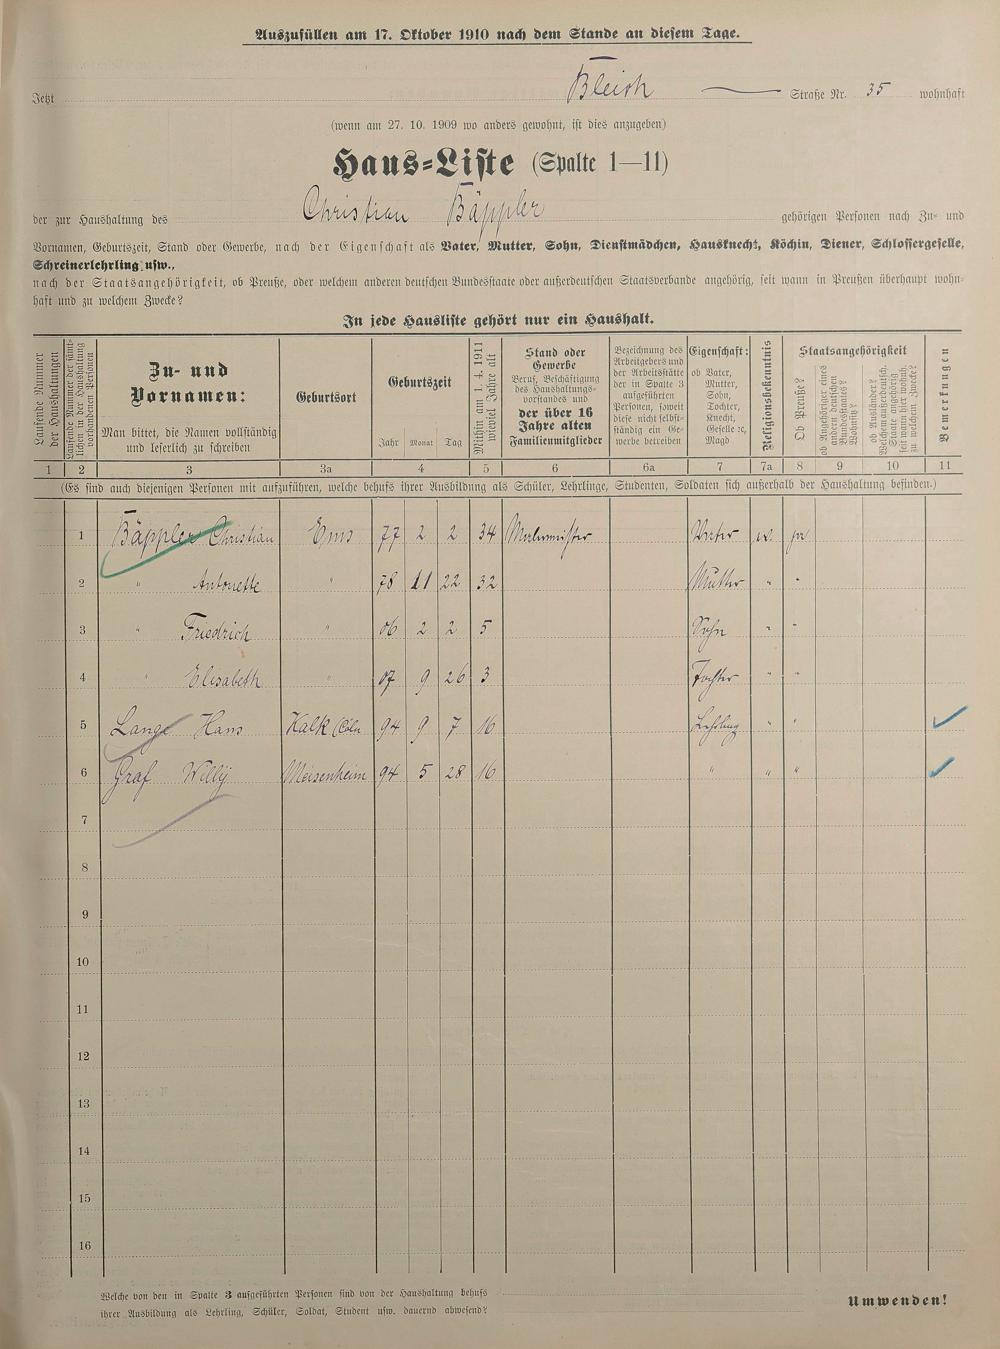 Auszufüllen am 17. Oktober 1910 nach dem Stande an diesem Tage.
Jetzt Bleich Straße Nr. 35 wohnhaft
(wenn am 27. 10. 1909 wo anders gewohnt, ist dies anzugeben)
Haus=Liste (Spalte 1—11)
der zur Haushaltung des Christian Bäppler gehörigen Personen nach Zu= und
Vornamen, Geburtszeit, Stand oder Gewerbe, nach der Eigenschaft als Vater, Mutter, Sohn, Dienstmädchen, Hausknecht, Köchin, Diener, Schlossergeselle,
Schreinerlehrling usw.,
nach der Staatsangehörigkeit, ob Preuße, oder welchem anderen deutschen Bundesstaate oder außerdeutschen Staatsverbande angehörig, seit wann in Preußen überhaupt wohn=
haft und zu welchem Zwecke?
In jede Hausliste gehört nur ein Haushalt.
Laufende Nummer
der Haushaltungen
Laufende Nummer der sämt=
lichen in der Haushaltung
vorhandenen Personen
Zu= und
Vornamen:
Man bittet, die Namen vollständig
und leserlich zu schreiben
Geburtsort
Geburtszeit
Jahr Monat Tag
Mithin am 1. 4. 1911
wieviel Jahre alt
Stand oder
Gewerbe
Beruf, Beschäftigung
des Haushaltungs=
vorstandes und
der über 16
Jahre alten
Familienmitglieder
Bezeichnung des
Arbeitgebers und
der Arbeitsstätte
der in Spalte 3
aufgeführten
Personen, soweit
diese nicht selbst=
ständig ein Ge=
werbe betreiben
Eigenschaft:
ob Vater,
Mutter,
Sohn,
Tochter,
Knecht,
Geselle ꝛc,
Magd
Religionsbekenntnis
Staatsangehörigkeit
Ob Preuße?
ob Angehöriger eines
andern deutschen
Bundesstaates?
Wohnsitz?
ob Ausländer?
Welchem außerdeutsch.
Staate angehörig
seit wann hier wohnh.
zu welchem Zwecke?
Bemerkungen
1 2 3 3a 4 5 6 6a 7 7a 8 9 10 11
(Es sind auch diejenigen Personen mit aufzuführen, welche behufs ihrer Ausbildung als Schüler, Lehrlinge, Studenten, Soldaten sich außerhalb der Haushaltung befinden.)
1 Bäppler Christian Ems 77 2 2 34 Malermeister Vater ev ja
2 " Antonette " 78 11 22 32 Mutter " "
3 " Friedrich " 06 2 2 5 Sohn " "
4 " Elisabeth " 07 9 26 3 Tochter " "
5 Lange Hans Kalk Cöln 94 9 7 16 Lehrling " "
6 Graf Willÿ Meisenheim 94 5 28 16 " " "
7
8
9
10
11
12
13
14
15
16
Welche von den in Spalte 3 aufgeführten Personen sind von der Haushaltung behufs
ihrer Ausbildung als Lehrling, Schüler, Soldat, Student usw. dauernd abwesend?
Umwenden!